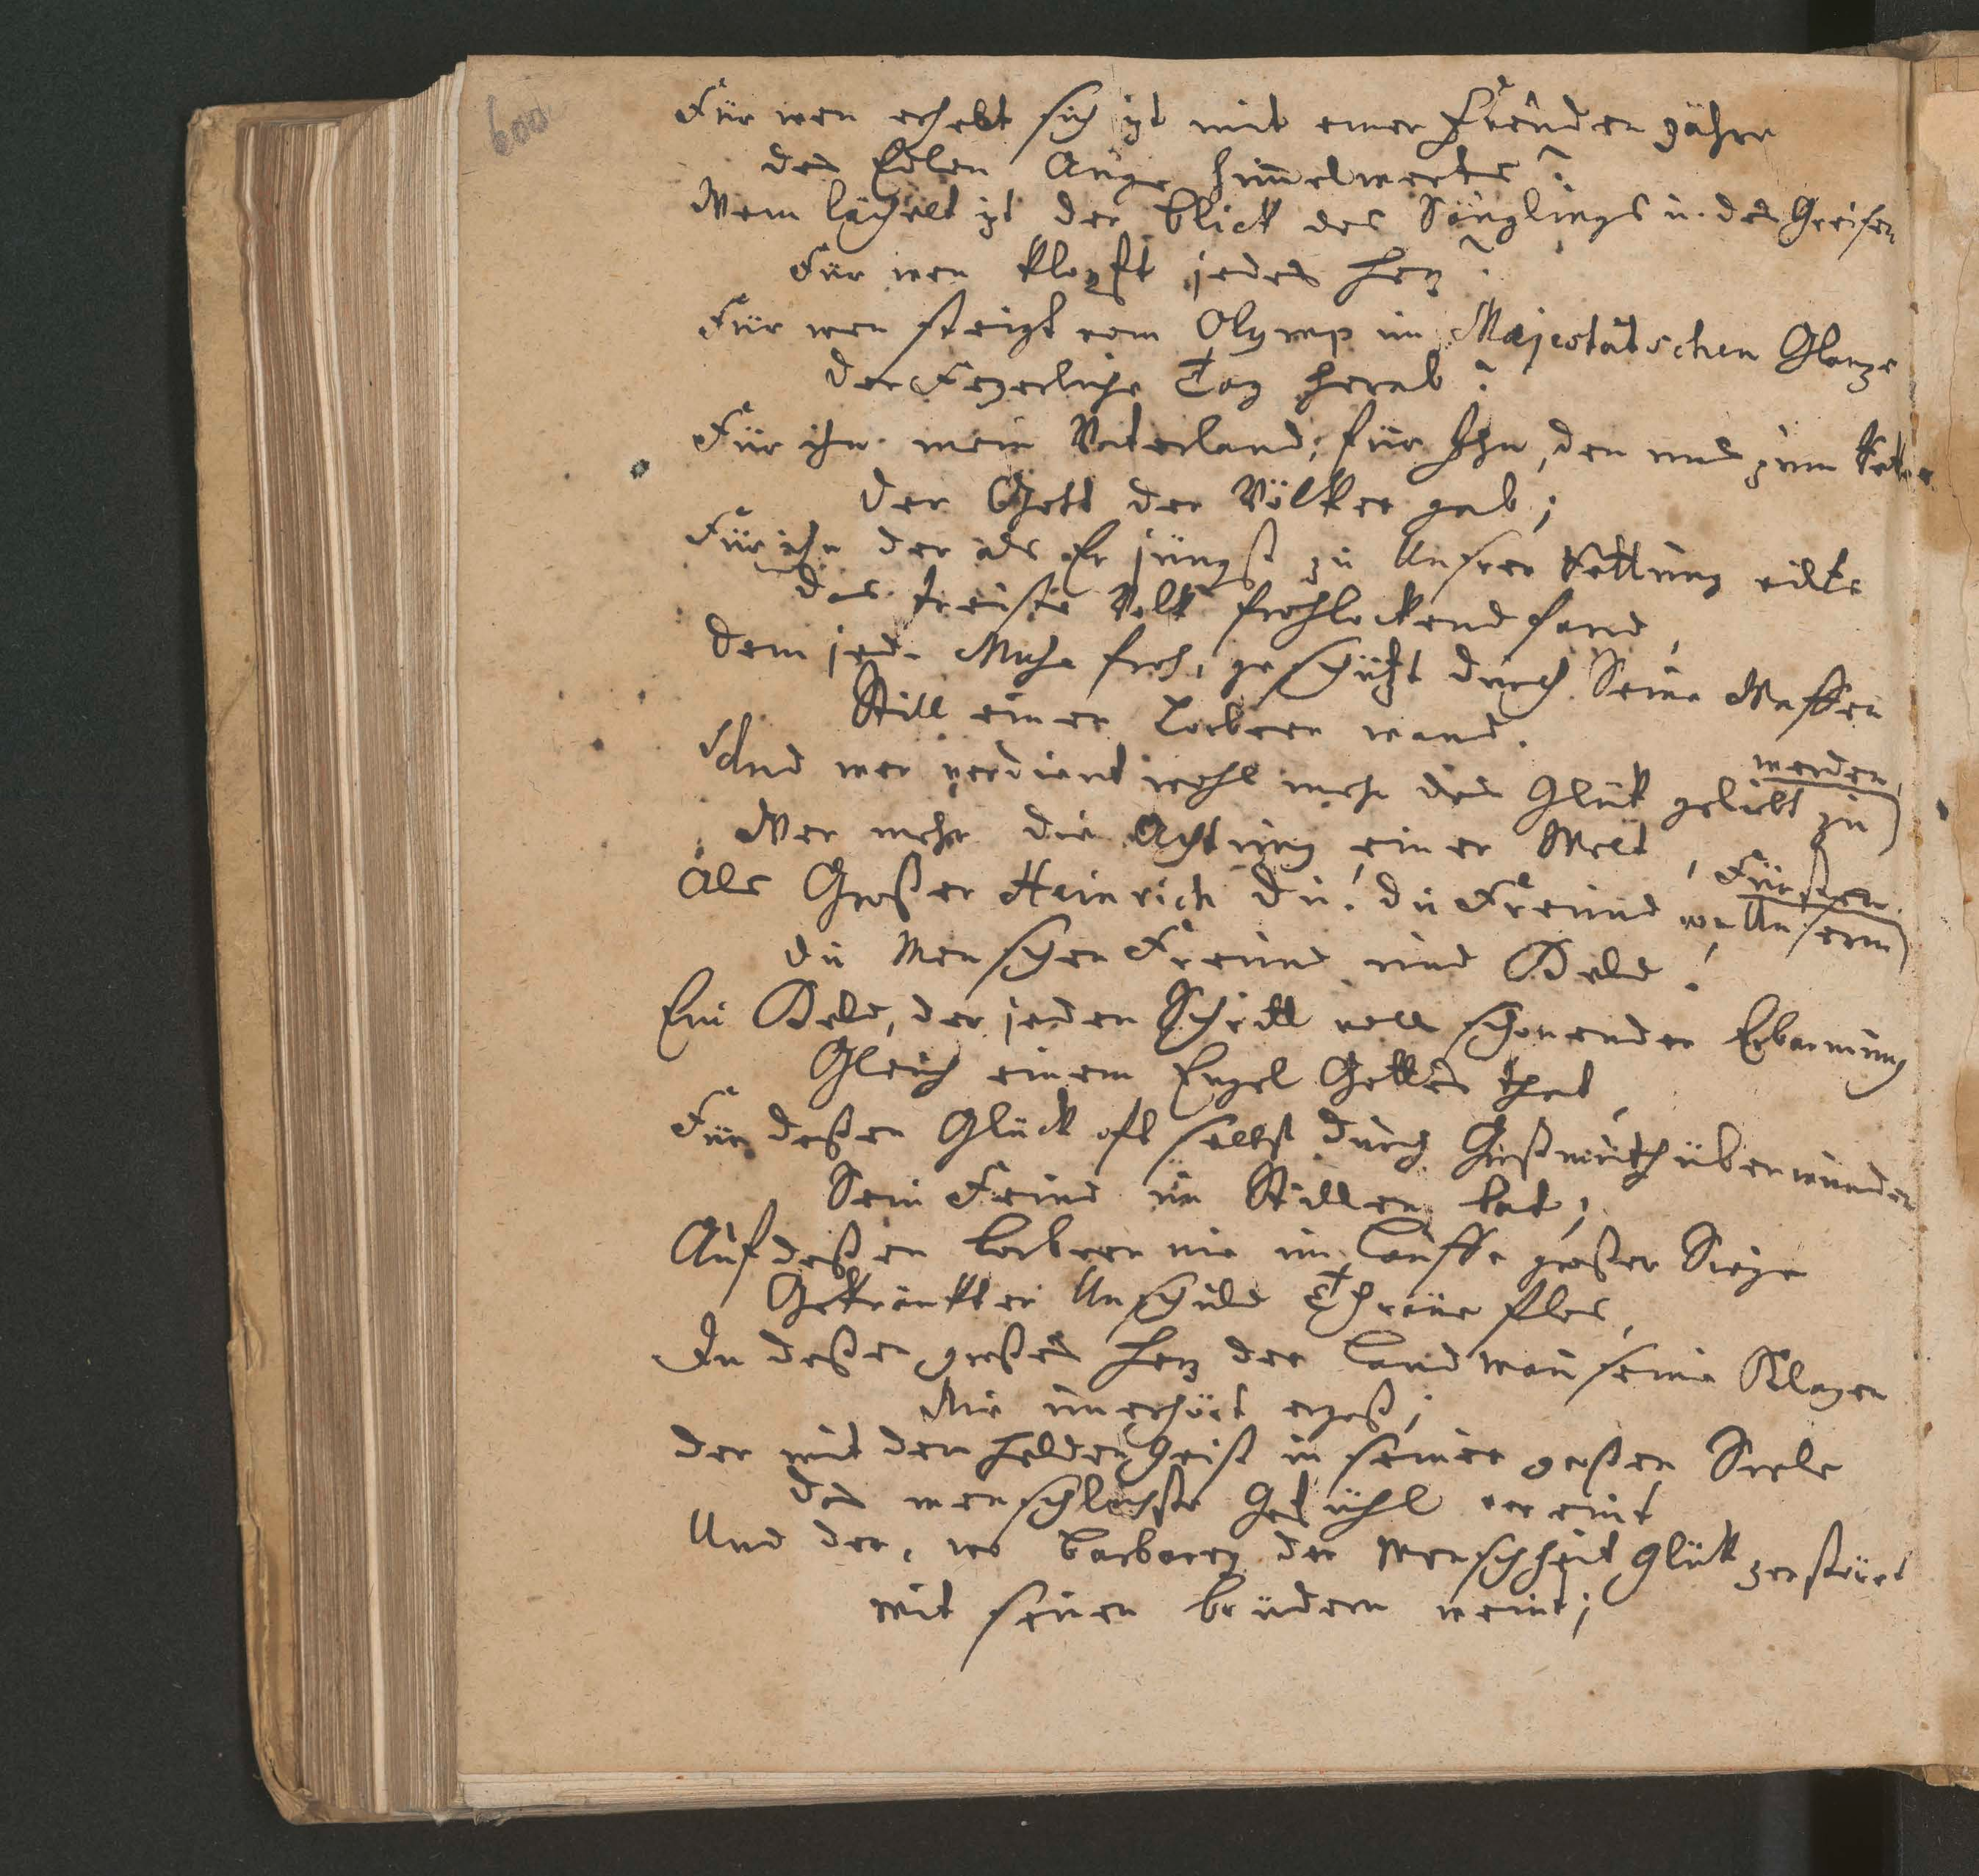 600
Für wen erhebt sich izt mit einer Freuden zähre
das Edlen Auge himelwerts?
Wem lächelt izt der Blick des Säuglings u. des Greisen
Für wen klopft jedes Herz?
Für wen steigt vom Olymp im Majestätschen Glanze
der Feyerliche Tag herab?
Für ihn mein Vaterland, für Ihn, den uns zum Retter
der Gott der Völker gab;
Für ihn der als Er jüngst zu Unsrer Rettung eilte
das treuste Volk frohlockend fand,
dem jede Muse froh, geschützt durch Seine Waffen
Still einen Lorbeer wand.
Und wer verdient wohl mehr das Glük geliebt zu
werden,
Wer mehr die Achtung einer Welt,
Als Großer Heinrich du! du Freund von Unserm
Fürsten
du Menschen Freund und Held!
Ein Held, der jeden Schritt voll schonender Erbarmung
Gleich einem Engel Gottes that,
Für deßen Glück oft selbst durch Großmuth überwunden
Sein Feind im Stillen bat;
Auf deßen Lorbeern nie im Lauffe großer Siege
Gekränkter Unschuld Thräne flos,
In deßen großes Herz der Landman seine Klagen
Nie unerhört ergoß;
der mit dem Helden Geist in seiner großen Seele
das menschlichste Gefühl vereint
Und der, wo Barbarey der Menschheit Glük zerstöret
mit seinen Brüdern weint;